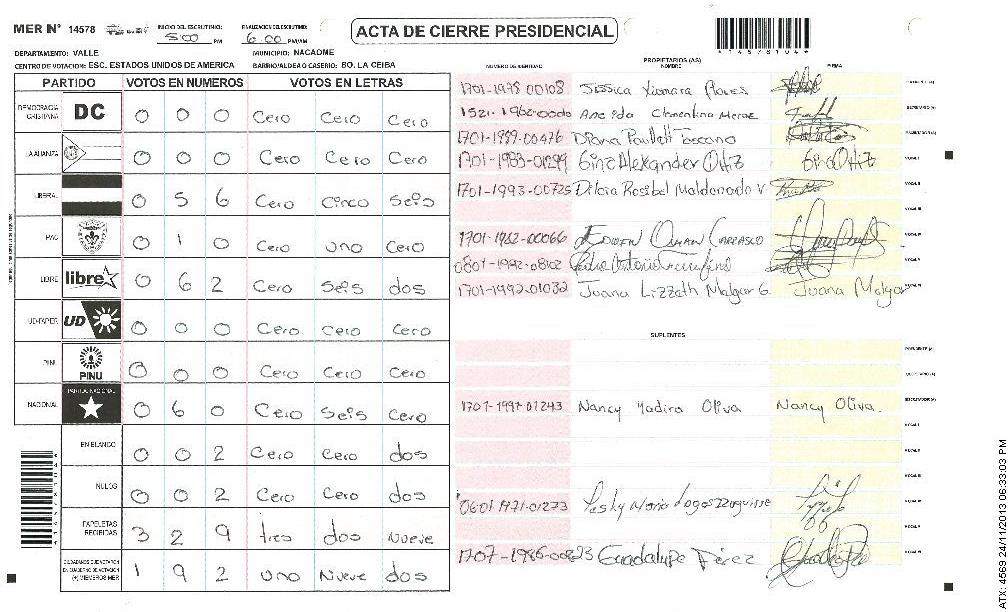 MER Nº 14578
INICIO DEL ESCRUTINIO: 5:00 PM
FINALIZACION DEL ESCRUTINIO: 6:00 PM/AM
ACTA DE CIERRE PRESIDENCIAL
DEPARTAMENTO: VALLE MUNICIPIO: NACAOME
CENTRO DE VOTACION: ESC. ESTADOS UNIDOS DE AMERICA BARRIO/ALDEA O CASERIO: BO. LA CEIBA
PARTIDO VOTOS EN NUMEROS VOTOS EN LETRAS
DEMOCRACIA CRISTIANA DC 0 0 0 Cero Cero Cero
LA ALIANZA 0 0 0 Cero Cero Cero
LIBERAL 0 5 6 Cero Cinco Seis
PAC 0 1 0 Cero uno Cero
LIBRE libre 0 6 2 Cero Seis dos
UD-FAPER UD 0 0 0 Cero Cero Cero
PINU PINU 0 0 0 Cero Cero Cero
NACIONAL PARTIDO NACIONAL 0 6 0 Cero Seis Cero
EN BLANCO 0 0 2 Cero Cero dos
NULOS 0 0 2 Cero Cero dos
PAPELETAS RECIBIDAS 3 2 9 tres dos Nueve
CIUDADANOS QUE VOTARON EN CUADERNO DE VOTACION (+) MIEMBROS MER 1 9 2 uno Nueve dos
PROPIETARIOS (AS)
NUMERO DE IDENTIDAD NOMBRE FIRMA
1701-1978 00108 Jessica Xiomara Flores
1521-1962-0000 Clementina
1701-1989-00476 Diana Paullett Toscano
1701-1983-01299 Gino Alexander Ortiz Gino Ortiz
1701-1993-00725 Rosibel Maldonado V
1701-1962-00066 Edwin Omar Carrasco
0801-1992-08102 Pedro Antonio
1701-1992-01032 Juana Lizzeth Melgar G. Juana Melgar
SUPLENTES
1701-1997-01243 Nancy Yadira Oliva Nancy Oliva.
0601 1971-01273
1707-1986-00823 Guadalupe Pérez
ATX: 4569 24/11/2013 06:33:03 PM